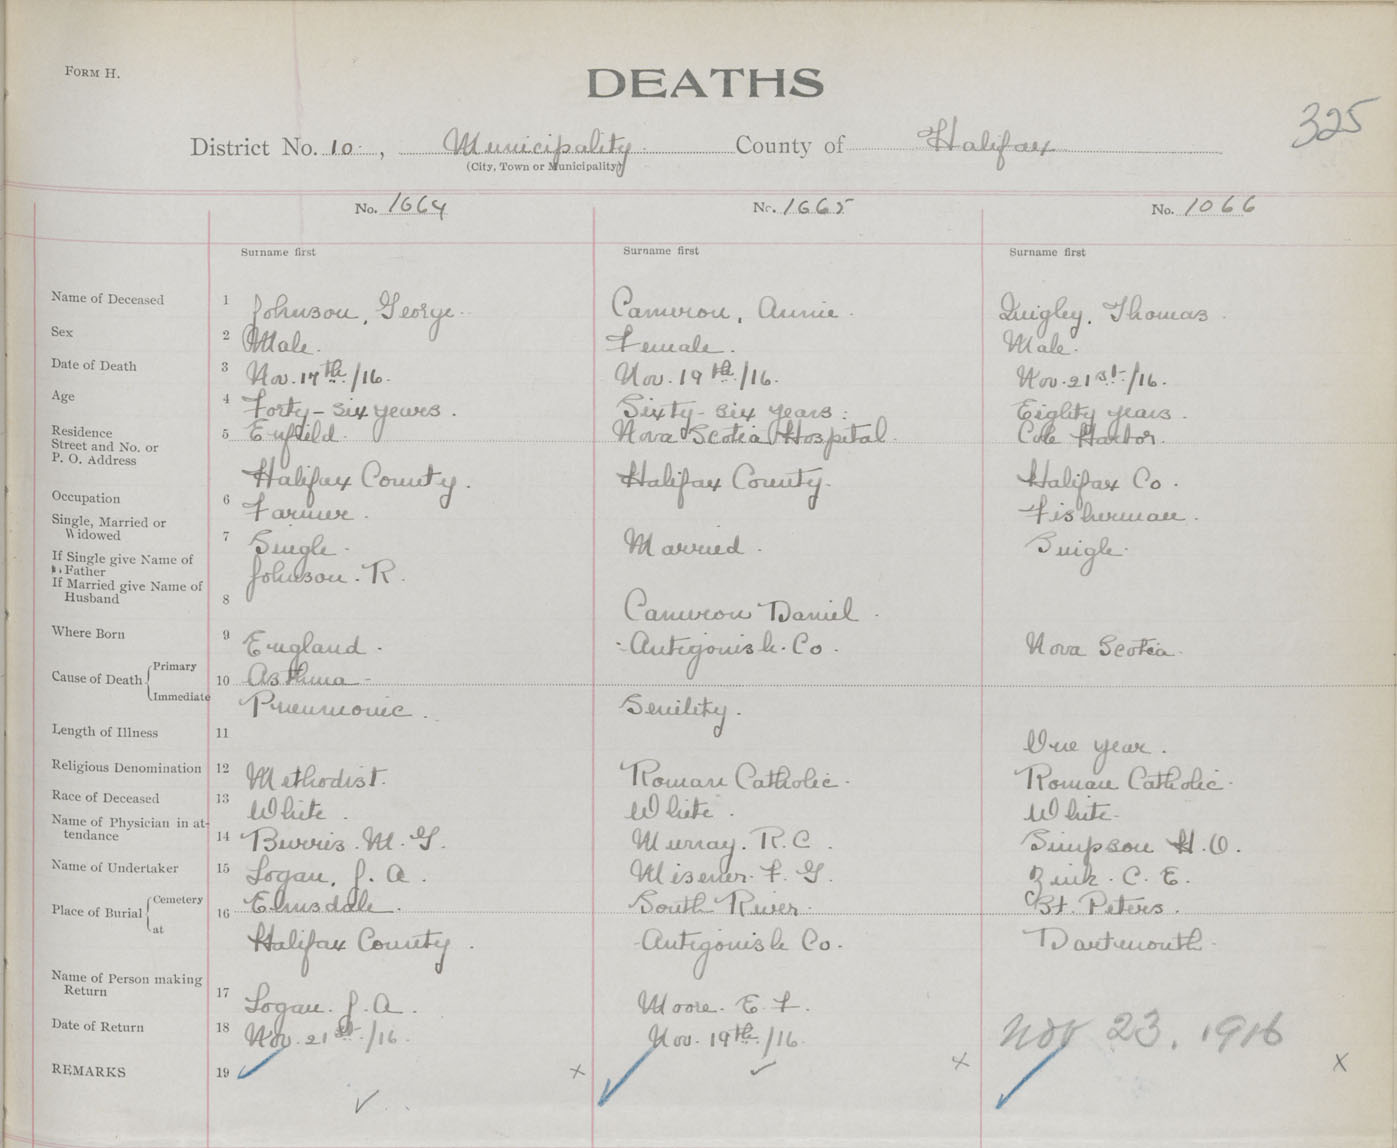 FORM H.
DEATHS
325
District No. 10 , Municipality County of Halifax
(City, Town or Municipality)
No. 1664 No. 1665 No. 1066
Surname first Surname first Surname first
Name of Deceased 1 Johnson, George. Cameron, Annie. Quigley, Thomas.
Sex 2 Male. Female. Male.
Date of Death 3 Nov. 17th/16. Nov. 19th/16. Nov. 21st/16.
Age 4 Forty-six years. Sixty-six years. Eighty years.
Residence
Street and No. or
P. O. Address
5 Enfield. Nova Scotia Hospital. Cole Harbor.
Halifax County. Halifax County. Halifax Co.
Occupation 6 Farmer. Fisherman.
Single, Married or
Widowed
7 Single. Married. Single.
If Single give Name of
Father
Johnson. R.
If Married give Name of
Husband
8 Cameron Daniel.
Where Born 9 England. Antigonish. Co. Nova Scotia.
Cause of Death Primary 10 Asthma -
Immediate Pneumonic. Senility.
Length of Illness 11 One year.
Religious Denomination 12 Methodist. Roman Catholic. Roman Catholic.
Race of Deceased 13 White. White. White.
Name of Physician in at-
tendance
14 Burris. M. G. Murray. R. C. Simpson H. O.
Name of Undertaker 15 Logan, J. A. Misener. F. G. Zink. C. E.
Place of Burial Cemetery 16 Elmsdale. South River. St. Peters.
at Halifax County. Antigonish Co. Dartmouth.
Name of Person making
Return
17 Logan. J. A. Moore. E. F.
Date of Return 18 Nov. 21st/16. Nov. 19th/16. Nov 23, 1916
REMARKS 19